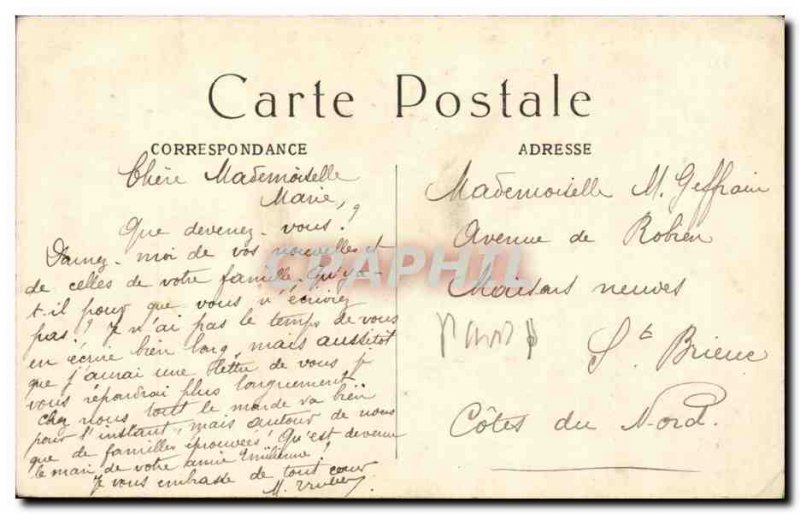 Carte Postale
CORRESPONDANCE
Chère Mademoiselle
Marie,
Que devenez-vous?
Donnez-moi de vos nouvelles et
de celles de votre famille. Qu'y a-
t-il pour que vous n'écriviez
pas? Je n'ai pas le temps de vous
en écrire bien long, mais aussitôt
que j'aurai une lettre de vous je
vous répondrai plus longuement.
Chez nous tout le monde va bien
pour l'instant, mais autour de nous
que de familles éprouvées! Qu'est devenu
le mari de votre amie Emilienne?
Je vous embrasse de tout cœur
M.
ADRESSE
Mademoiselle M. Geffrain
Avenue de Robien
Maisons neuves
St Brieuc
Côtes du Nord.
CPAPHIL